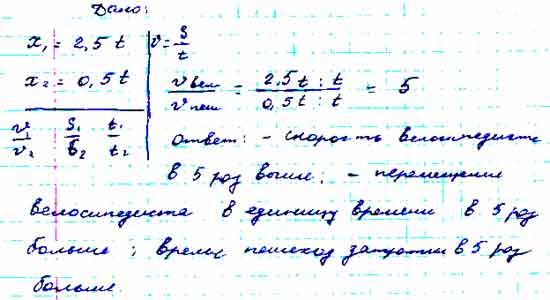 Дано:
x₁ = 2,5 t
x₂ = 0,5 t
v₁/v₂ S₁/S₂ t₁/t₂
v = S/t
v вел/v пеш = 2,5 t : t/0,5 t : t = 5
Ответ: - скорость велосипедиста
в 5 раз выше; - перемещение
велосипедиста в единицу времени в 5 раз
больше; время пешеход затратит в 5 раз
больше.